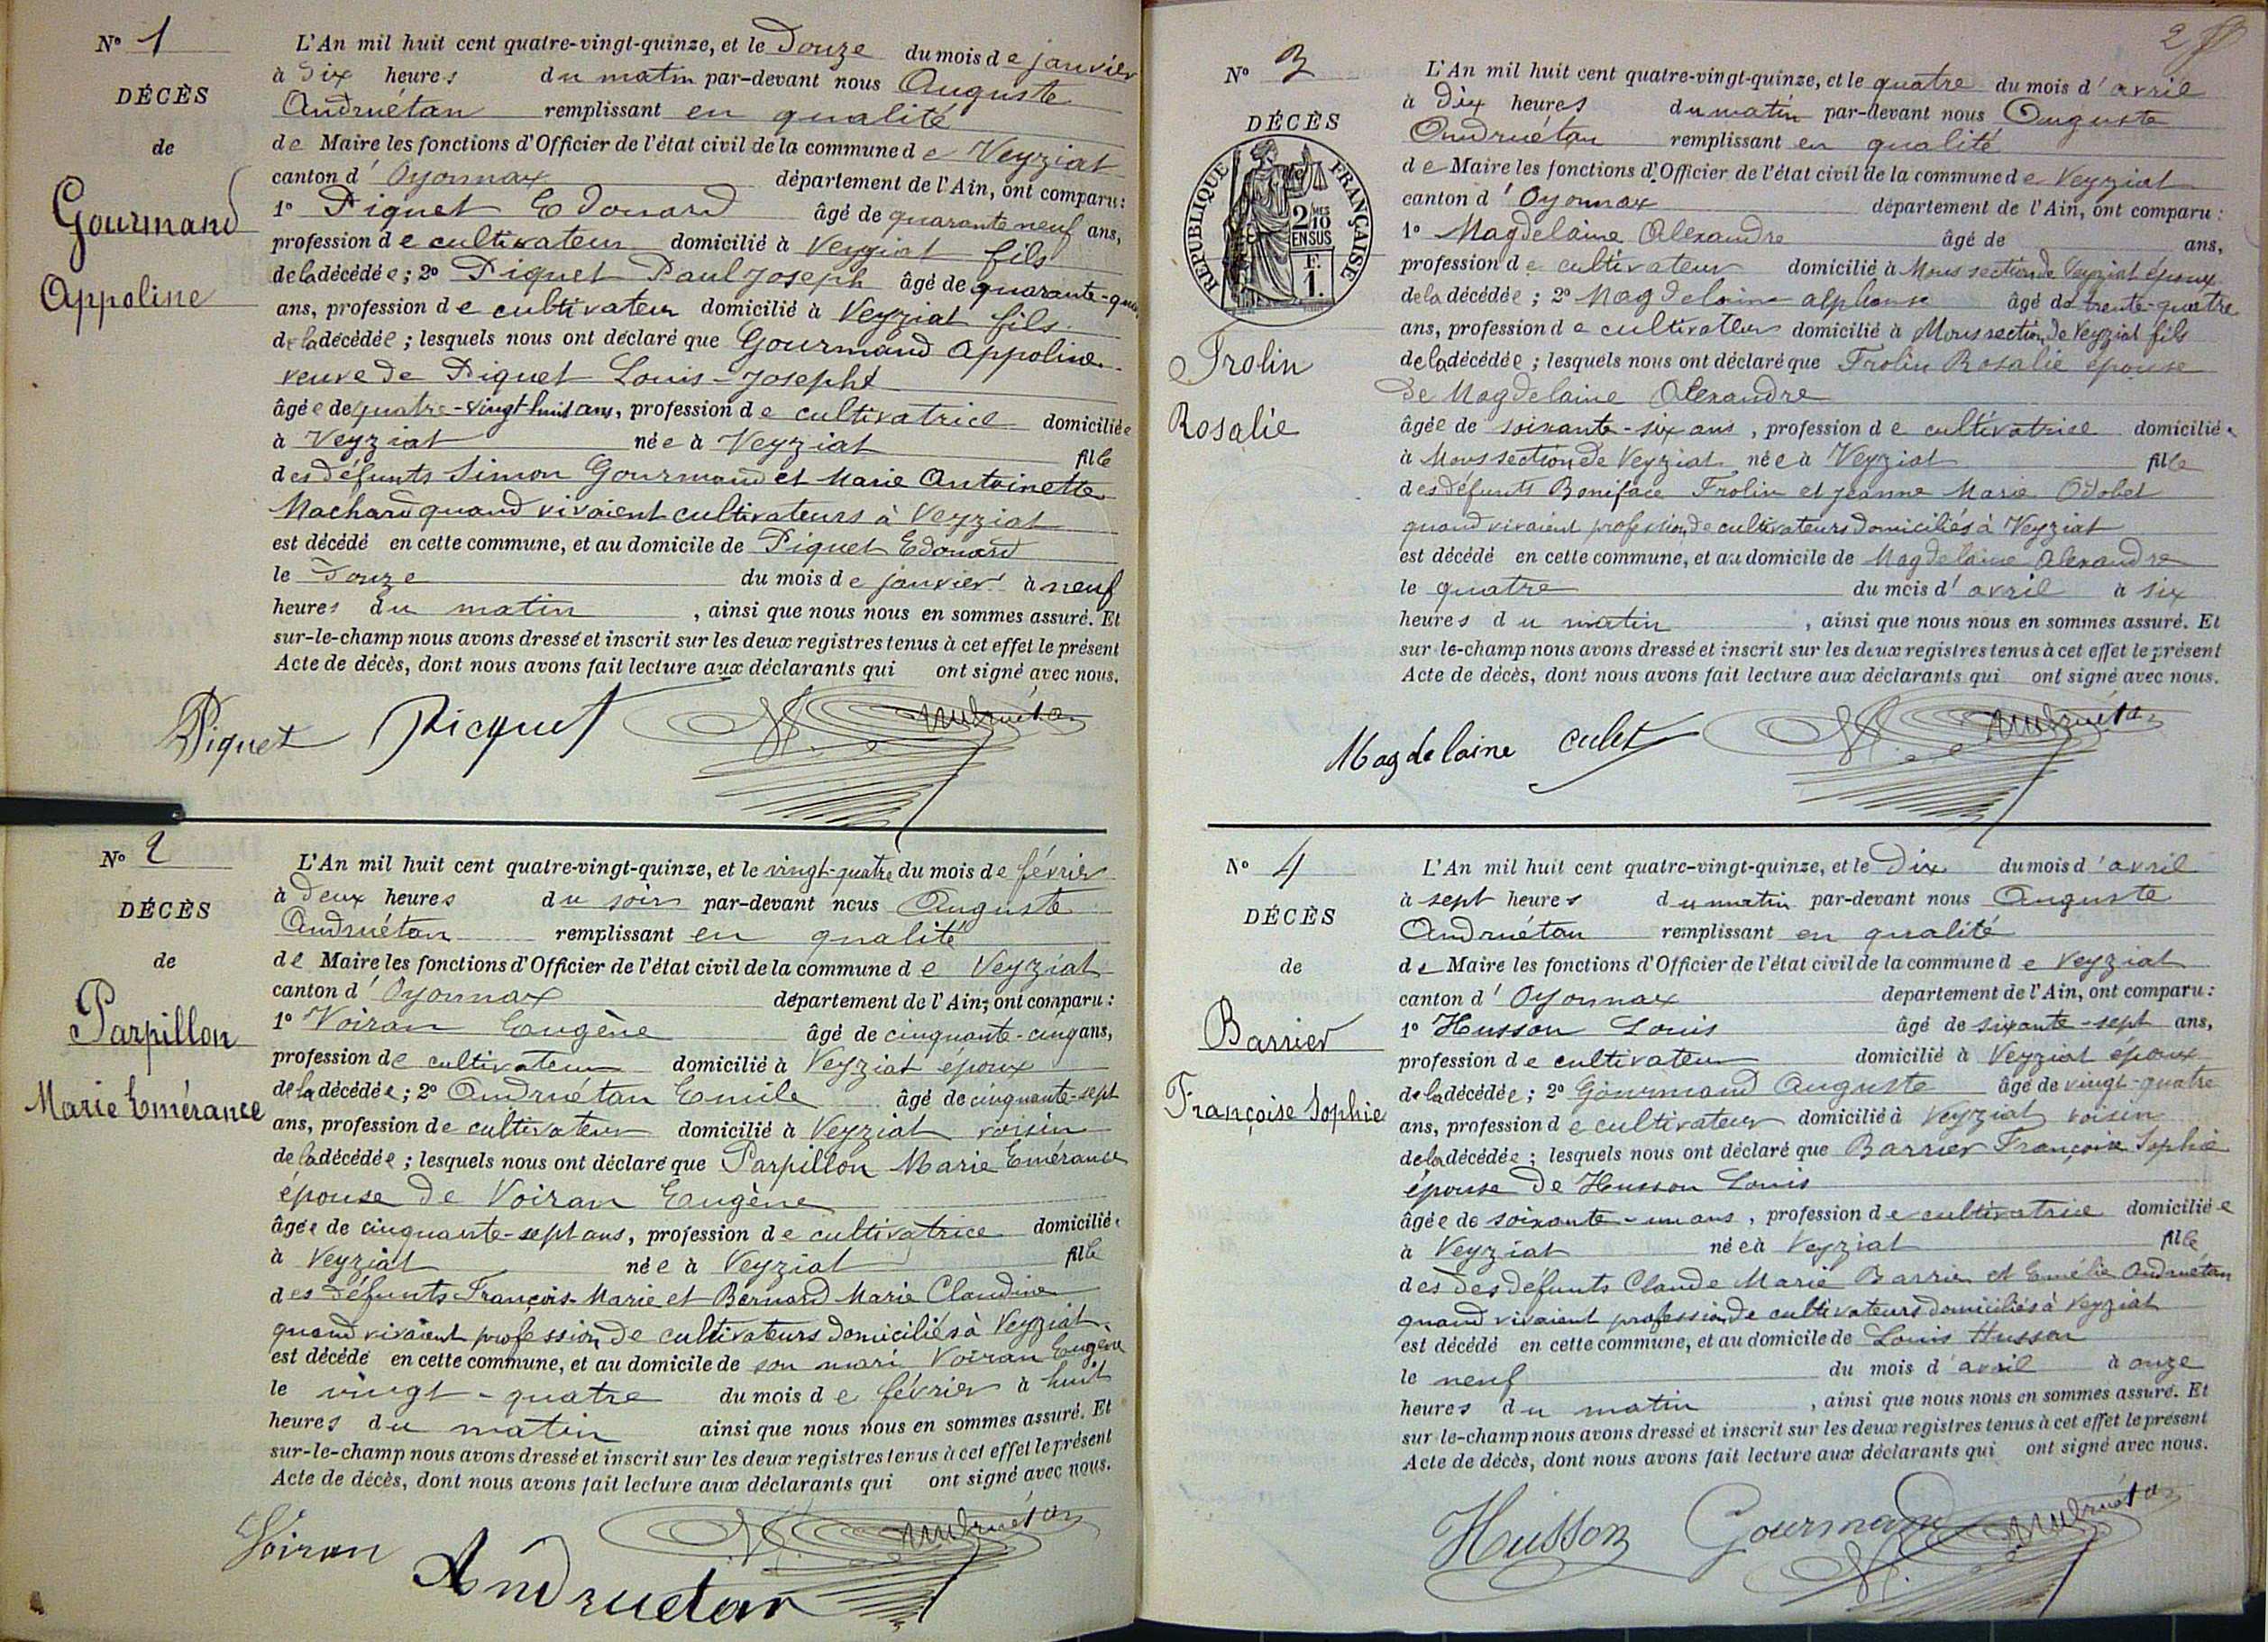 Nº 1
DÉCÈS
de
Gourmand
Appoline
L'An mil huit cent quatre-vingt-quinze, et le Douze du mois de janvier
à Dix heures du matin par-devant nous Auguste
Andruétan remplissant en qualité
de Maire les fonctions d'Officier de l'état civil de la commune de Veyziat
canton d' Oyonnax département de l'Ain, ont comparu :
1º Piquet Edouard âgé de quarante neuf ans,
profession de cultivateur domicilié à Veyziat fils
de la décédée ; 2º Piquet Paul Joseph âgé de quarante-
ans, profession de cultivateur domicilié à Veyziat fils
de la décédée ; lesquels nous ont déclaré que Gourmand Appoline
veuve de Piquet Louis-Joseph
âgée de quatre-vingt-huit ans, profession de cultivatrice domiciliée
à Veyziat née à Veyziat fille
des défunts Simon Gourmand et Marie Antoinette
Machard quand vivaient cultivateurs à Veyziat
est décédé en cette commune, et au domicile de Piquet Edouard
le Douze du mois de janvier à neuf
heures du matin , ainsi que nous nous en sommes assuré. Et
sur-le-champ nous avons dressé et inscrit sur les deux registres tenus à cet effet le présent
Acte de décès, dont nous avons fait lecture aux déclarants qui ont signé avec nous.
Piquet Picquet Andruétan
Nº 2
DÉCÈS
de
Parpillon
Marie Emérance
L'An mil huit cent quatre-vingt-quinze, et le vingt-quatre du mois de février
à Deux heures du soir par-devant nous Auguste
Andruétan remplissant en qualité
de Maire les fonctions d'Officier de l'état civil de la commune de Veyziat
canton d' Oyonnax département de l'Ain, ont comparu :
1º Voiran Eugène âgé de cinquante-cinq ans,
profession de cultivateur domicilié à Veyziat époux
de la décédée ; 2º Andruétan Emile âgé de cinquante-sept
ans, profession de cultivateur domicilié à Veyziat voisin
de la décédée ; lesquels nous ont déclaré que Parpillon Marie Emérance
épouse de Voiran Eugène
âgée de cinquante-sept ans, profession de cultivatrice domiciliée
à Veyziat née à Veyziat fille
des défunts François-Marie et Bernard Marie Claudine
quand vivaient profession de cultivateurs domiciliés à Veyziat
est décédé en cette commune, et au domicile de son mari Voiran Eugène
le vingt-quatre du mois de février à huit
heures du matin ainsi que nous nous en sommes assuré. Et
sur-le-champ nous avons dressé et inscrit sur les deux registres tenus à cet effet le présent
Acte de décès, dont nous avons fait lecture aux déclarants qui ont signé avec nous.
Voiran Andruetan Andruétan
2
Nº 3
DÉCÈS
REPUBLIQUE FRANÇAISE
2/10 MES
EN SUS
F.
1.
Frolin
Rosalie
L'An mil huit cent quatre-vingt-quinze, et le quatre du mois d' avril
à Dix heures du matin par-devant nous Auguste
Andruétan remplissant en qualité
de Maire les fonctions d'Officier de l'état civil de la commune de Veyziat
canton d' Oyonnax département de l'Ain, ont comparu :
1º Magdelaine Alexandre âgé de ans,
profession de cultivateur domicilié à Mons section de Veyziat époux
de la décédée ; 2º Magdelaine alphonse âgé de trente-quatre
ans, profession de cultivateur domicilié à Mons section de Veyziat fils
de la décédée ; lesquels nous ont déclaré que Frolin Rosalie épouse
De Magdelaine Alexandre
âgée de soixante-six ans , profession de cultivatrice domiciliée
à Mons section de Veyziat née à Veyziat fille
des défunts Boniface Frolin et Jeanne Marie Odobet
quand vivaient profession de cultivateurs domiciliés à Veyziat
est décédé en cette commune, et au domicile de Magdelaine Alexandre
le quatre du mois d' avril à six
heures du matin , ainsi que nous nous en sommes assuré. Et
sur-le-champ nous avons dressé et inscrit sur les deux registres tenus à cet effet le présent
Acte de décès, dont nous avons fait lecture aux déclarants qui ont signé avec nous.
Magdelaine Andruétan
Nº 4
DÉCÈS
de
Barrier
Françoise Sophie
L'An mil huit cent quatre-vingt-quinze, et le Dix du mois d' avril
à sept heures du matin par-devant nous Auguste
Andruétan remplissant en qualité
de Maire les fonctions d'Officier de l'état civil de la commune de Veyziat
canton d' Oyonnax département de l'Ain, ont comparu :
1º Husson Louis âgé de sixante-sept ans,
profession de cultivateur domicilié à Veyziat époux
de la décédée ; 2º Gourmand Auguste âgé de vingt-quatre
ans, profession de cultivateur domicilié à Veyziat voisin
de la décédée ; lesquels nous ont déclaré que Barrier Françoise Sophie
épouse De Husson Louis
âgée de soixante-un ans , profession de cultivatrice domiciliée
à Veyziat née à Veyziat fille
des des défunts Claude Marie Barrier et Emélie Andruétan
quand vivaient profession de cultivateurs domiciliés à Veyziat
est décédé en cette commune, et au domicile de Louis Husson
le neuf du mois d' avril à onze
heures du matin , ainsi que nous nous en sommes assuré. Et
sur-le-champ nous avons dressé et inscrit sur les deux registres tenus à cet effet le présent
Acte de décès, dont nous avons fait lecture aux déclarants qui ont signé avec nous.
Husson Gourmand Andruétan